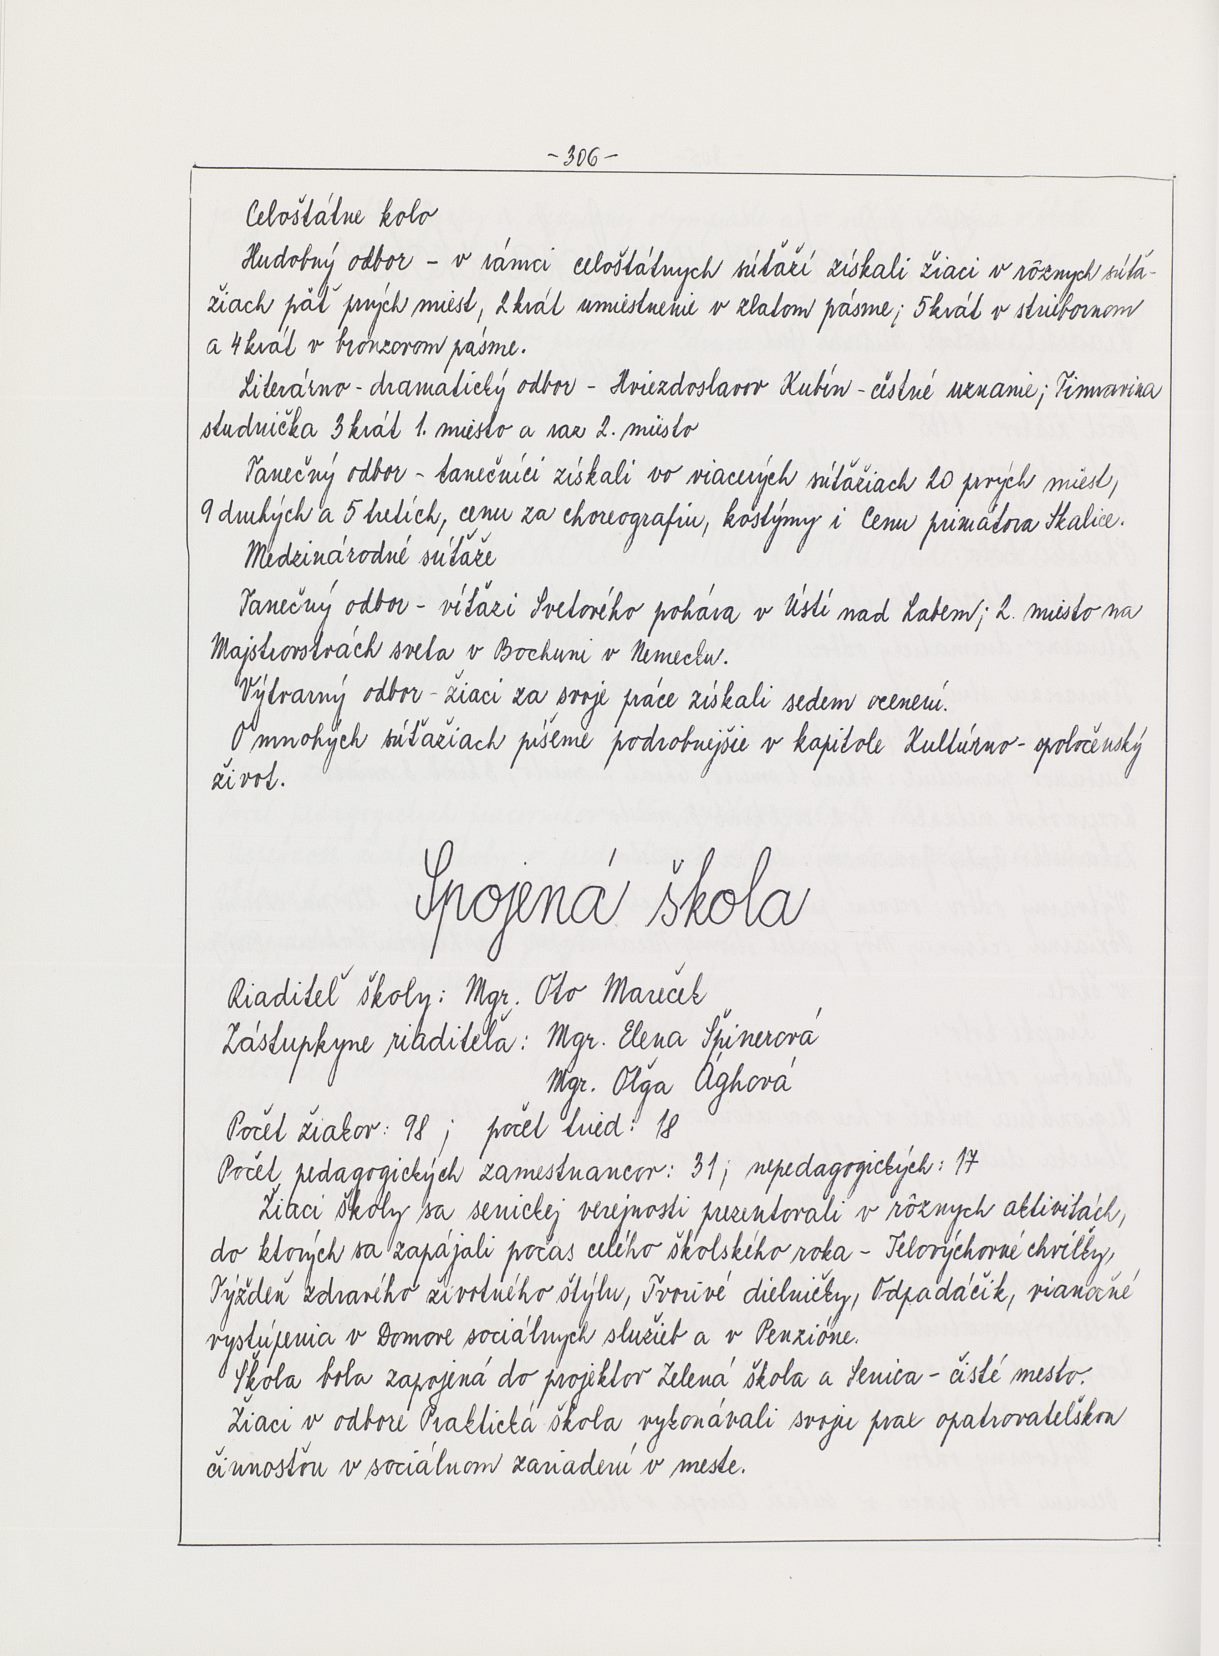 - 306 -
Celoštátne kolo
Hudobný odbor - v rámci celoštátnych súťaží získali žiaci v rôznych súťa-
žiach päť prvých miest, 2 krát umiestnenie v zlatom pásme; 5 krát v striebornom
a 4 krát v bronzovom pásme.
Literárno - dramatický odbor - Hviezdoslavov Kubín - čestné uznanie; Timravina
studnička 3 krát 1. miesto a raz 2. miesto
Tanečný odbor - tanečníci získali vo viacerých súťažiach 20 prvých miest,
9 druhých a 5 tretích, cenu za choreografiu, kostýmy i Cenu primátora Skalice.
Medzinárodné súťaže
Tanečný odbor - víťazi Svetového pohára v Ústí nad Labem; 2. miesto na
Majstrovstvách sveta v Bochumi v Nemecku.
Výtvarný odbor - žiaci za svoje práce získali sedem ocenení.
O mnohých súťažiach píšeme podrobnejšie v kapitole Kultúrno - spoločenský
život.
Spojená škola
Riaditeľ školy: Mgr. Oto Mareček
Zástupkyne riaditeľa: Mgr. Elena Špinerová
Mgr. Oľga Ághová
Počet žiakov: 98; počet tried: 18
Počet pedagogických zamestnancov: 31; nepedagogických: 17
Žiaci školy sa senickej verejnosti prezentovali v rôznych aktivitách,
do ktorých sa zapájali počas celého školského roka - Telovýchovné chvíľky,
Týždeň zdravého životného štýlu, Tvorivé dielničky, Odpadáčik, vianočné
vystúpenia v Domove sociálnych služieb a v Penzióne.
Škola bola zapojená do projektov Zelená škola a Senica - čisté mesto.
Žiaci v odbore Praktická škola vykonávali svoju prax opatrovateľskou
činnosťou v sociálnom zariadení v meste.